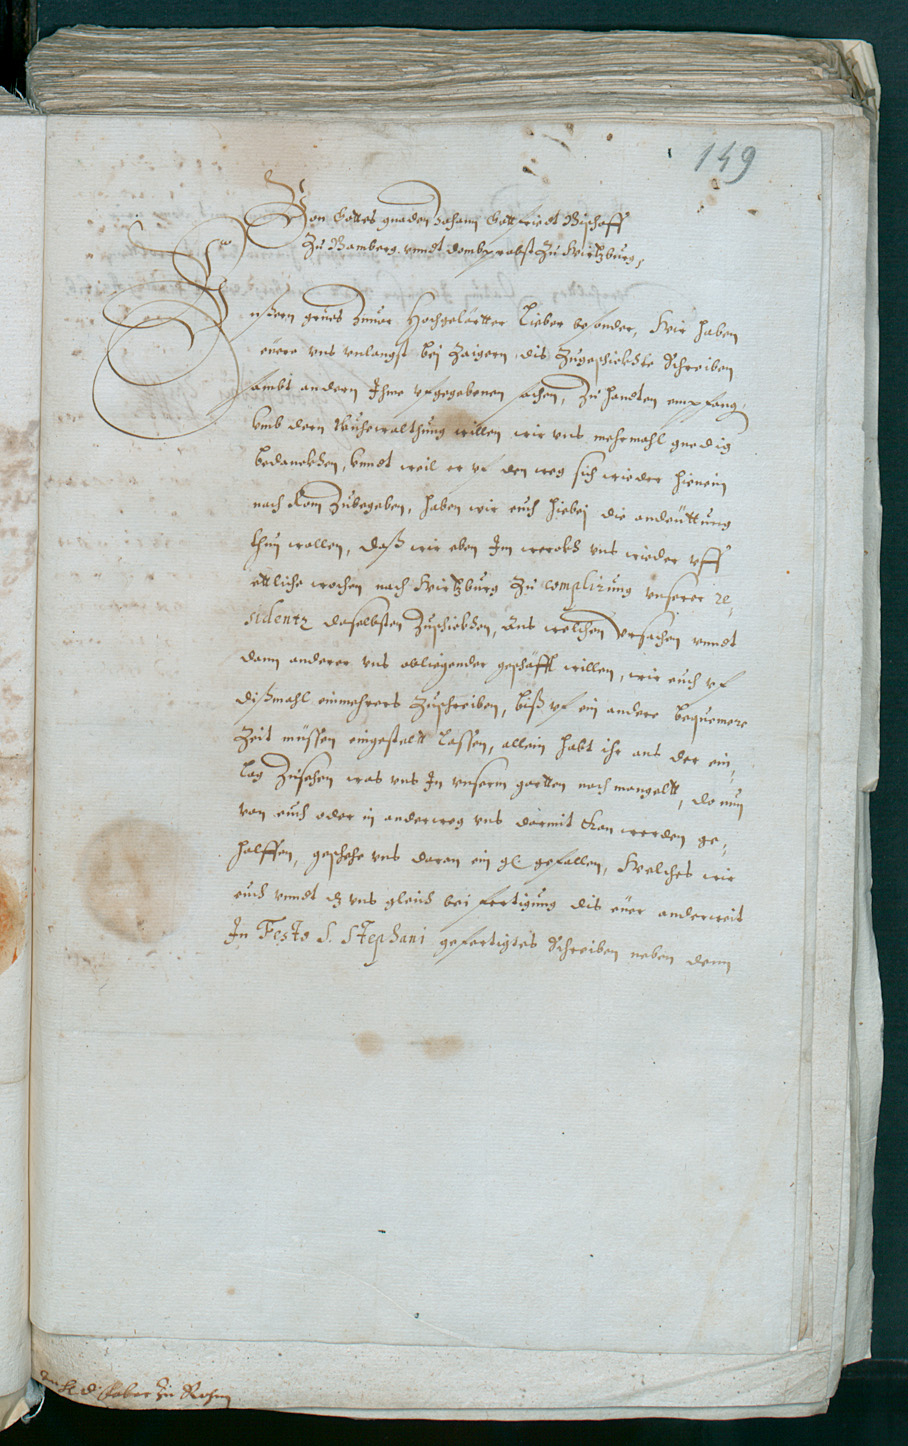 149
Von Gottes gnaden Johann Gottfriedt Bischoff
Zu Bamberg vnndt dombprobst Zu Würtzburg,
Vnßern grues Zuuor Hochgelärtter Lieber besonder, Wir haben
euere vns vnlangst bej Zaigern dis Zugeschickhte Schreiben
sambt andern Ihme vfgegebenen sachen, Zu handten empfang,
vmb deren willen wir vns mehrmahl gnedig
bedanckhen, vnndt weil er vf den weg sich wieder hienein
nach Rom Zubegeben, haben wir euch hiebej die andeüttung
thun wollen, daß wir eben Im werckh vns wieder vff
ettliche wochen nach Würtzburg Zu complirung vnserer re,
sidentz daselbsten Zuschickhen, Aus welchen vrsachen vnndt
dann anderer vns obliegender geschäfft willen, wir euch vf
dißmahl einmehrers Zuschreiben, biß vf ein andere bequemere
Zeit müssen eingestelt lassen, allein habt ihr aus der ein,
lag Zusehen was vns In vnserm gartten noch mangelt, do nun
von euch oder in anderweg vns darmit kan werden ge,
holffen, geschehe vns daran ein gl. gefallen, Welches wir
euch vnndt dz vns gleich bei fertigung dis euer anderweit
In Festo S. Stephani gefertigtes Schreiben neben denn
An H. D. Faber Zu Rohm